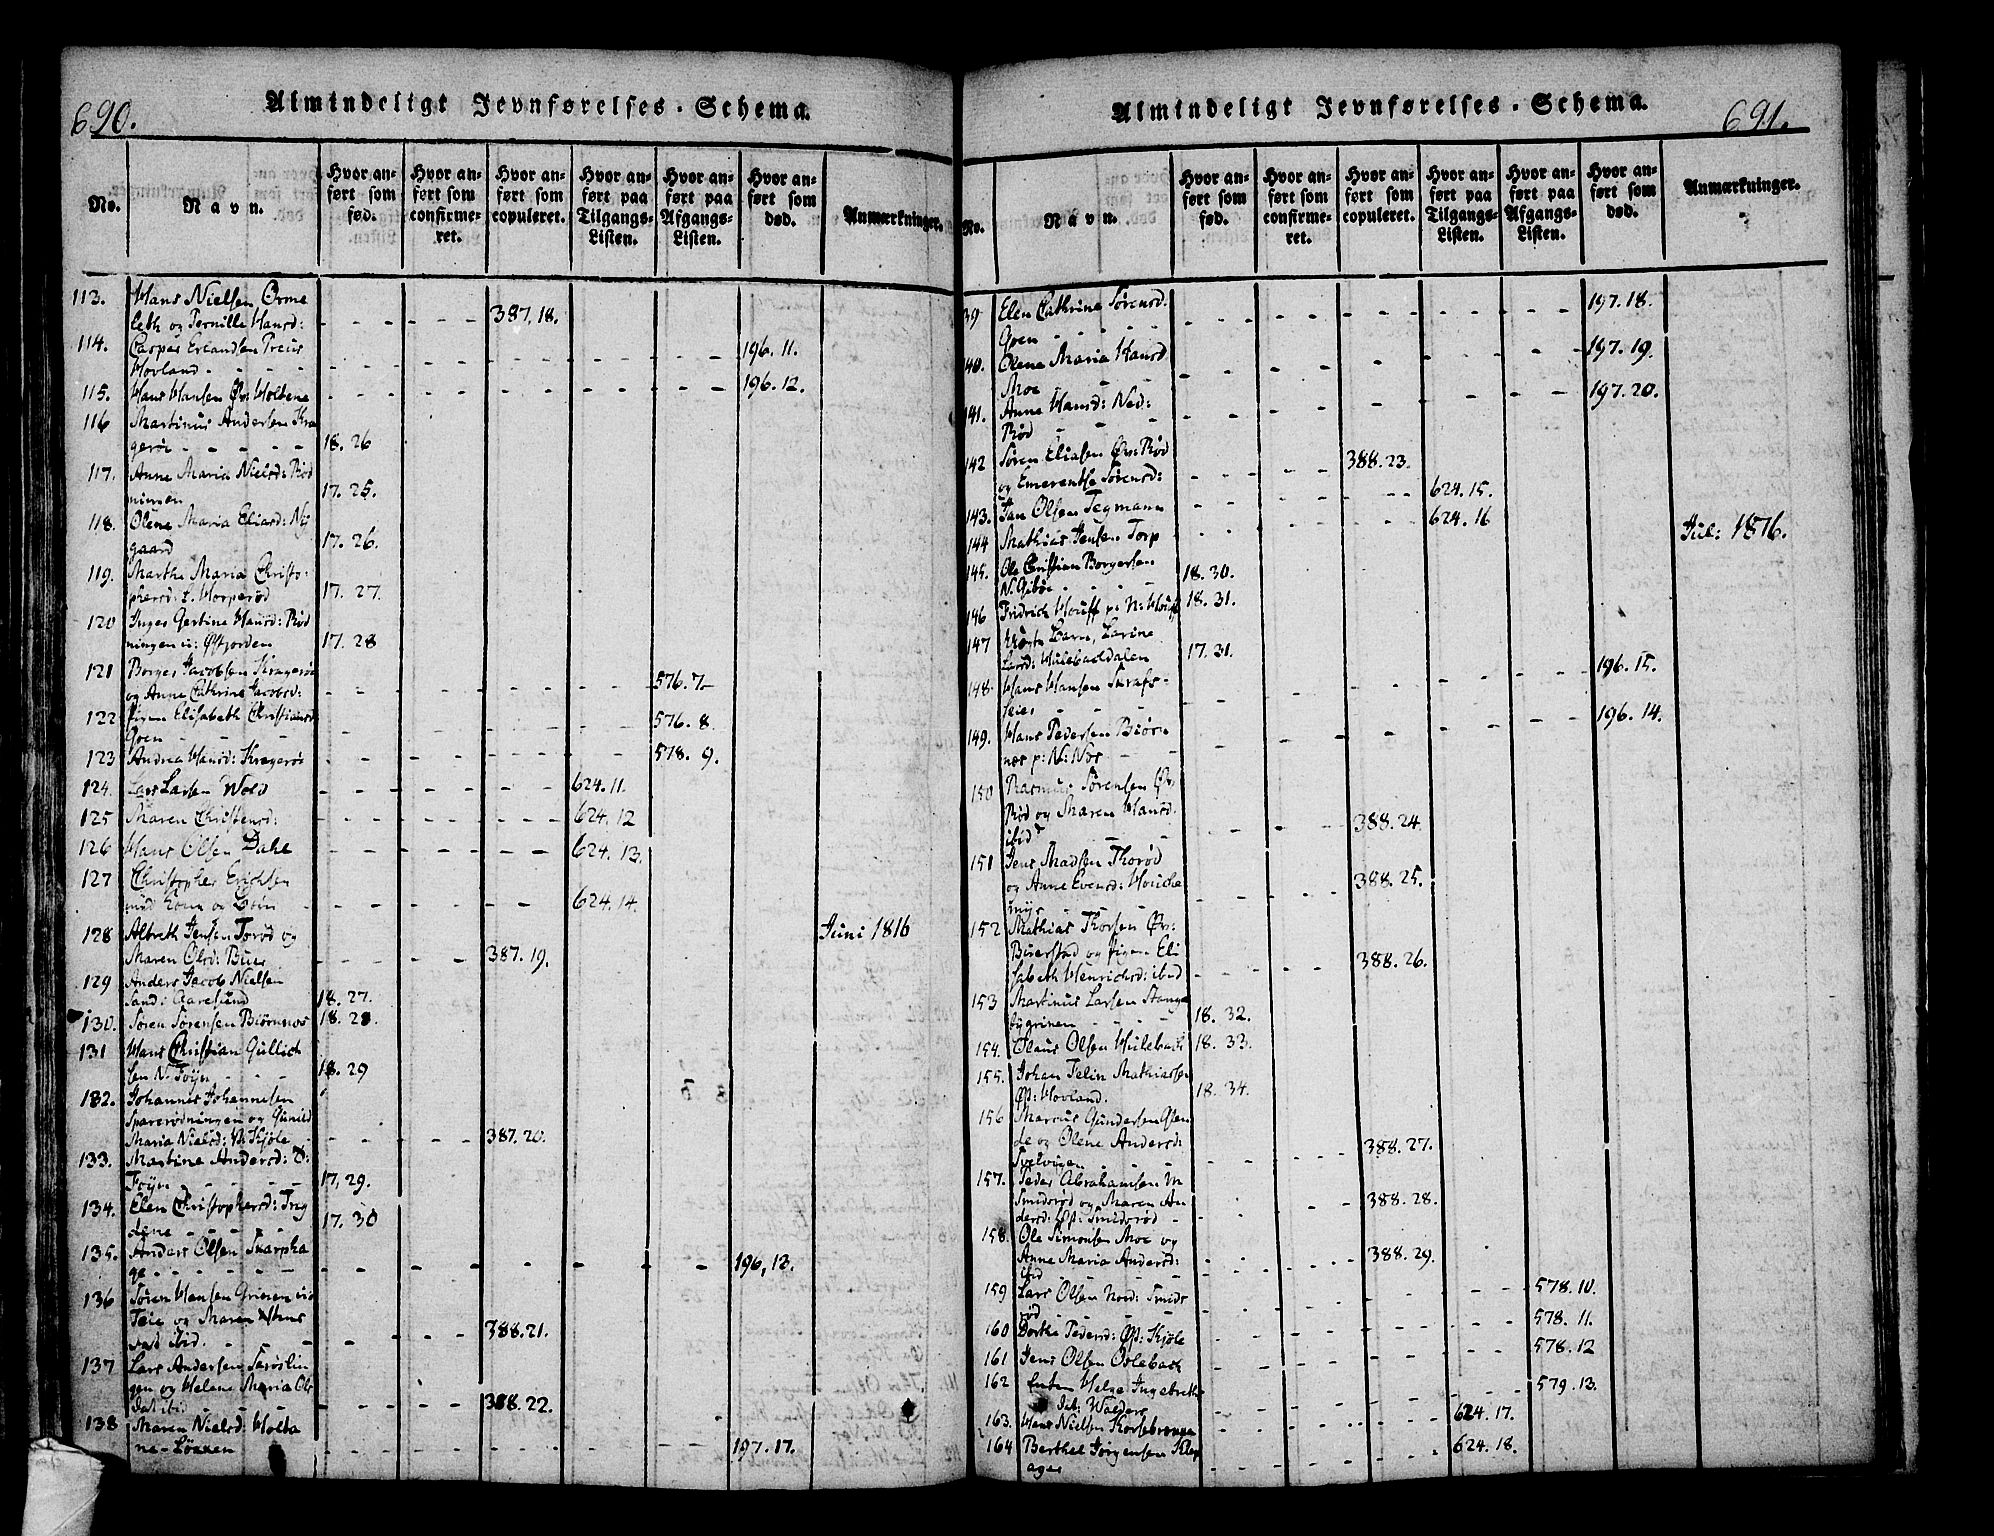 690.
Almindeligt Jevnførelses-Schema.
No.
Navn.
Hvor anført som fød.
Hvor anført som confirmeret.
Hvor anført som copuleret.
Hvor anført paa Tilgangs-Listen.
Hvor anført paa Afgangs-Listen.
Hvor anført som død.
Anmærkninger.
113. Hans Nielsen Orme
leth og Pernille Hansd: 387. 18.
114. Casper Erlandsen Preus
Hovland 196. 11.
115. Hans Hansen Øv: Holtene 196. 12.
116 Martinus Andersen Kra
gerøe 18. 26
117. Anne Maria Nielsd: Rød
ningen 17. 25.
118. Olene Maria Eliasd: Nÿ
gaard 17. 26.
119. Marthe Maria Christo-
phersd: L. Horperød 17. 27.
120 Inger Gertine Hansd: Rød
ningen u: Østjorden 17. 28
121 Borger Jacobsen Kragerøe
og Anne Cathrine Jacobsd: 576. 7
122 Pigen Elisabeth Christiansd
Goen 576. 8.
123 Andrea Hansd: Kragerøe 578. 9.
124. Lars Larsen Wold 624. 11.
125 Maren Christensd: 624. 12
126 Hans Olsen Dahl 624. 13.
127 Christopher Erichsen
med Kone og Børn 624. 14.
Juni 1816
128 Albreth Jensen Torød og
Maren Olsd: Buer 387. 19.
129 Anders Jacob Nielsen
Sand: Aarøesund 18. 27.
130. Søren Sørensen Biørnnæs 18. 28.
131 Hans Christian Gullich
sen N. Foÿn 18. 29
132. Johannes Johannesen
Sparerødningen og Gunild
Maria Nielsd: N. Kjøle 387. 20.
133. Martine Andersd: Ø:
Foÿn 17. 29.
134. Elen Christophersd: Trug
dene 17. 30
135. Anders Olsen Skarpha
ge 196. 13.
136 Søren Hansen Grinen u:
Teie og Maren
ibid. 388. 21.
137 Lars Andersen
gen og Helene Maria Ols
ibid 388. 22.
138 Maren Nielsd: Holta
ne-Løkken 197. 17.
691.
Almindeligt Jevnførelses-Schema.
No.
Navn.
Hvor anført som fød.
Hvor anført som confirmeret.
Hvor anført som copuleret.
Hvor anført paa Tilgangs-Listen.
Hvor anført paa Afgangs-Listen.
Hvor anført som død.
Anmærkninger.
39 Elen Cathrine Sørensd.
Goen 197. 18.
140. Olene Maria Hansd
Moe 197. 19.
141. Anne Hansd: Ned:
Rød 197. 20.
142 Søren Eliasen Øv: Rød
og Emerentse Sørensd: 388. 23.
143. Jan Olsen Tegmann 624. 15.
144 Mathias Jensen Torp 624. 16
Jul: 1816.
145. Ole Christian Borgersen
N. Gibøe 18. 30.
146 Fridrich Houff p: N: Houff 18. 31.
147 Uægte Barn, Larine
Larsd: Hulebachdalen 17. 31.
148. Hans Hansen Skrafs-
teies 196. 15.
149. Hans Pedersen Biørn
nes p: N: Nos 196. 14.
150 Rasmus Sørensen Øv:
Rød og Maren Hansd:
ibid 388. 24.
151 Jens Madsen Thorød
og Anne Evensd: Houche
myr 388. 25.
152 Mathias Thorsen Øv:
Buerstad og Pigen Eli
sabeth Henrichsd: ibid 388. 26.
153 Martinus Larsen Stange
bygrinen 18. 32.
154. Claus Olsen Hulebach 18. 33.
155. Johan Felix Mathiassen
Øst: Hovland. 18. 34.
156 Marcus Gundersen Glen
de og Olene Andersd:
Svelvigen 388. 27.
157. Peder Abrahamsen
Smidsrød og Maren An
dersd: Øst: Smidsrød 388. 28.
158. Ole Simonsen Moe og
Anne Maria Andersd:
ibid 388. 29.
159 Lars Olsen Nord: Smids
rød 578. 10.
160 Dorthe Pedersd: Øst: Kjøle 578. 11.
161 Jens Olsen Oslebach 578. 12
162 Enken Helge Ingebreths
dat: Walders 579. 13.
163. Hans Nielsen Korsebrønna 624. 17.
164 Barthel Jørgensen Klop
ager 624. 18.